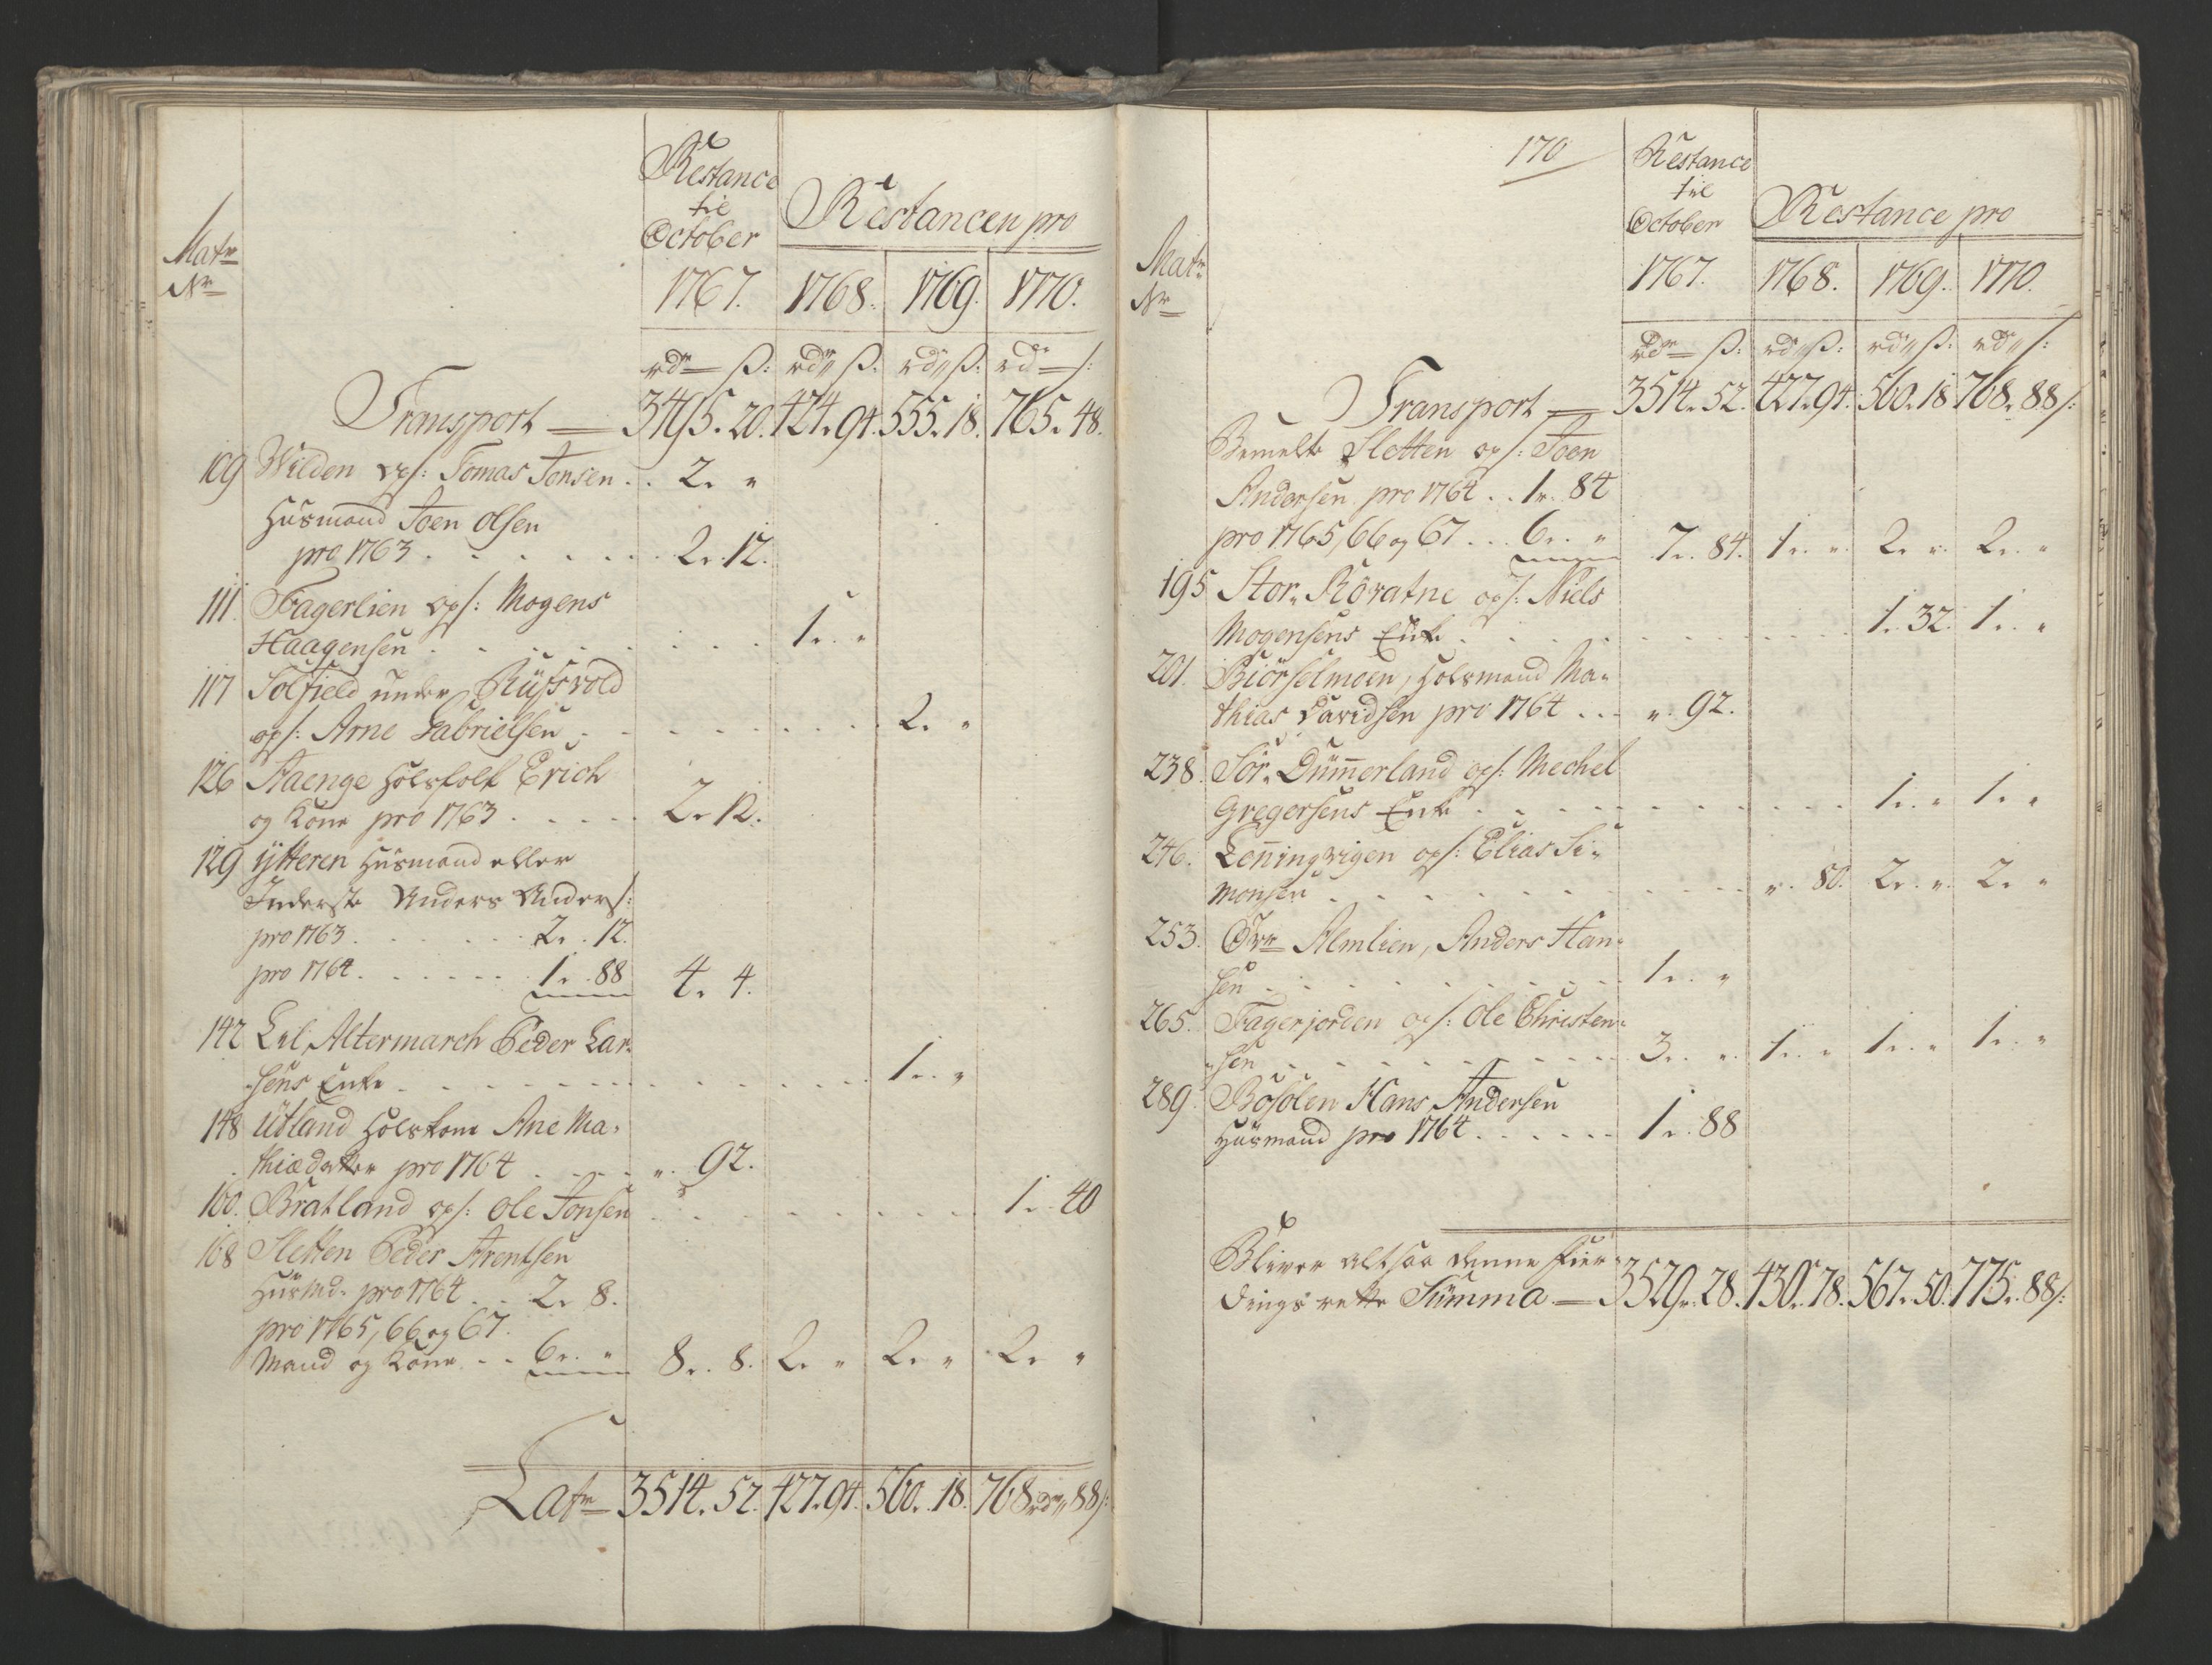 Matr
Nr
Restance
til
October
1767.
Restancen pro
1768. 1769. 1770.
rdr ß: rd" ß. rd" ß. rdr ß:
Transport 3495. 20. 424. 94. 555. 18. 765. 48.
109 Wilden ops: Tomas Jonsen . . 2. "
Huusmand Joen Olsen
pro 1763 . . . . . . 2. 12.
111. Fagerlien ops: Mogens
Haagensen . . . . . . . 1. "
117 Solfield under Rüssvold
ops: Arne Gabrielsen . . . . . . . . 2. "
126 Staenge Holsfolk Erich
og Kone pro 1763 . . . . . 2. 12.
129 Ytteren Huusmand eller
Inderste Anders Anders:
pro 1763 . . . . . . 2. 12.
pro 1764 . . . . . . 1. 88 4. 4.
142 Lil, Altermarch Peder Lar-
sens Enke . . . . . . . . . . . 1. "
148 Utland Holskone Ane Ma-
thiædatter pro 1764 . . . . " 92.
160. Bratland ops: Ole Jonsen . . . . . . . . 1. 40
168 Sletten Peder Arentsen
Huusmd. pro 1764 . . 2. 8.
pro 1765, 66 og 67.
Mand og Kone . . 6. " 8. 8. 2. " 2. " 2. "
Latr 3514. 52. 427. 94. 560. 18. 768 rdr 88 ß:
170
Matr
Nr
Restance
til
October
1767.
Restance pro
1768. 1769. 1770.
rdr ß: rd" ß: rd" ß. rd" ß:
Transport 3514. 52. 427. 94. 560. 18 768. 88 ß:
Bemelte Sletten ops: Joen
Andersen pro 1764 . . 1. 84
pro 1765, 66 og 67 . . . 6. " 7. 84. 1. " 2. " 2. "
195 Stor, Rövatne ops: Niels
Mogensens Enke . . . . . . . . . 1. 32. 1. "
201. Biörselmoen, Holsmand Ma-
thias Davidsen pro 1764 . . . " 92.
238. Sör, Dümmerland ops: Mechel
Gregersens Enke . . . . . . . . . . 1. " 1. "
246. Lenningvigen ops: Elias Si-
monsen . . . . . . . . . " 80. 2. " 2. "
253. Övr Almlien, Anders Han-
sen . . . . . . . . . 1. "
265. Fagerjorden ops: Ole Christen-
sen . . . . . . . . . 3. " 1. " 1. " 1. "
289. Bösolen Hans Andersen
Huusmand pro 1764 . . . . . . 1. 88
Bliver altsaa denne Fier-
dings rette Summa 3529. 28. 430. 78. 567. 50. 775. 88 ß: